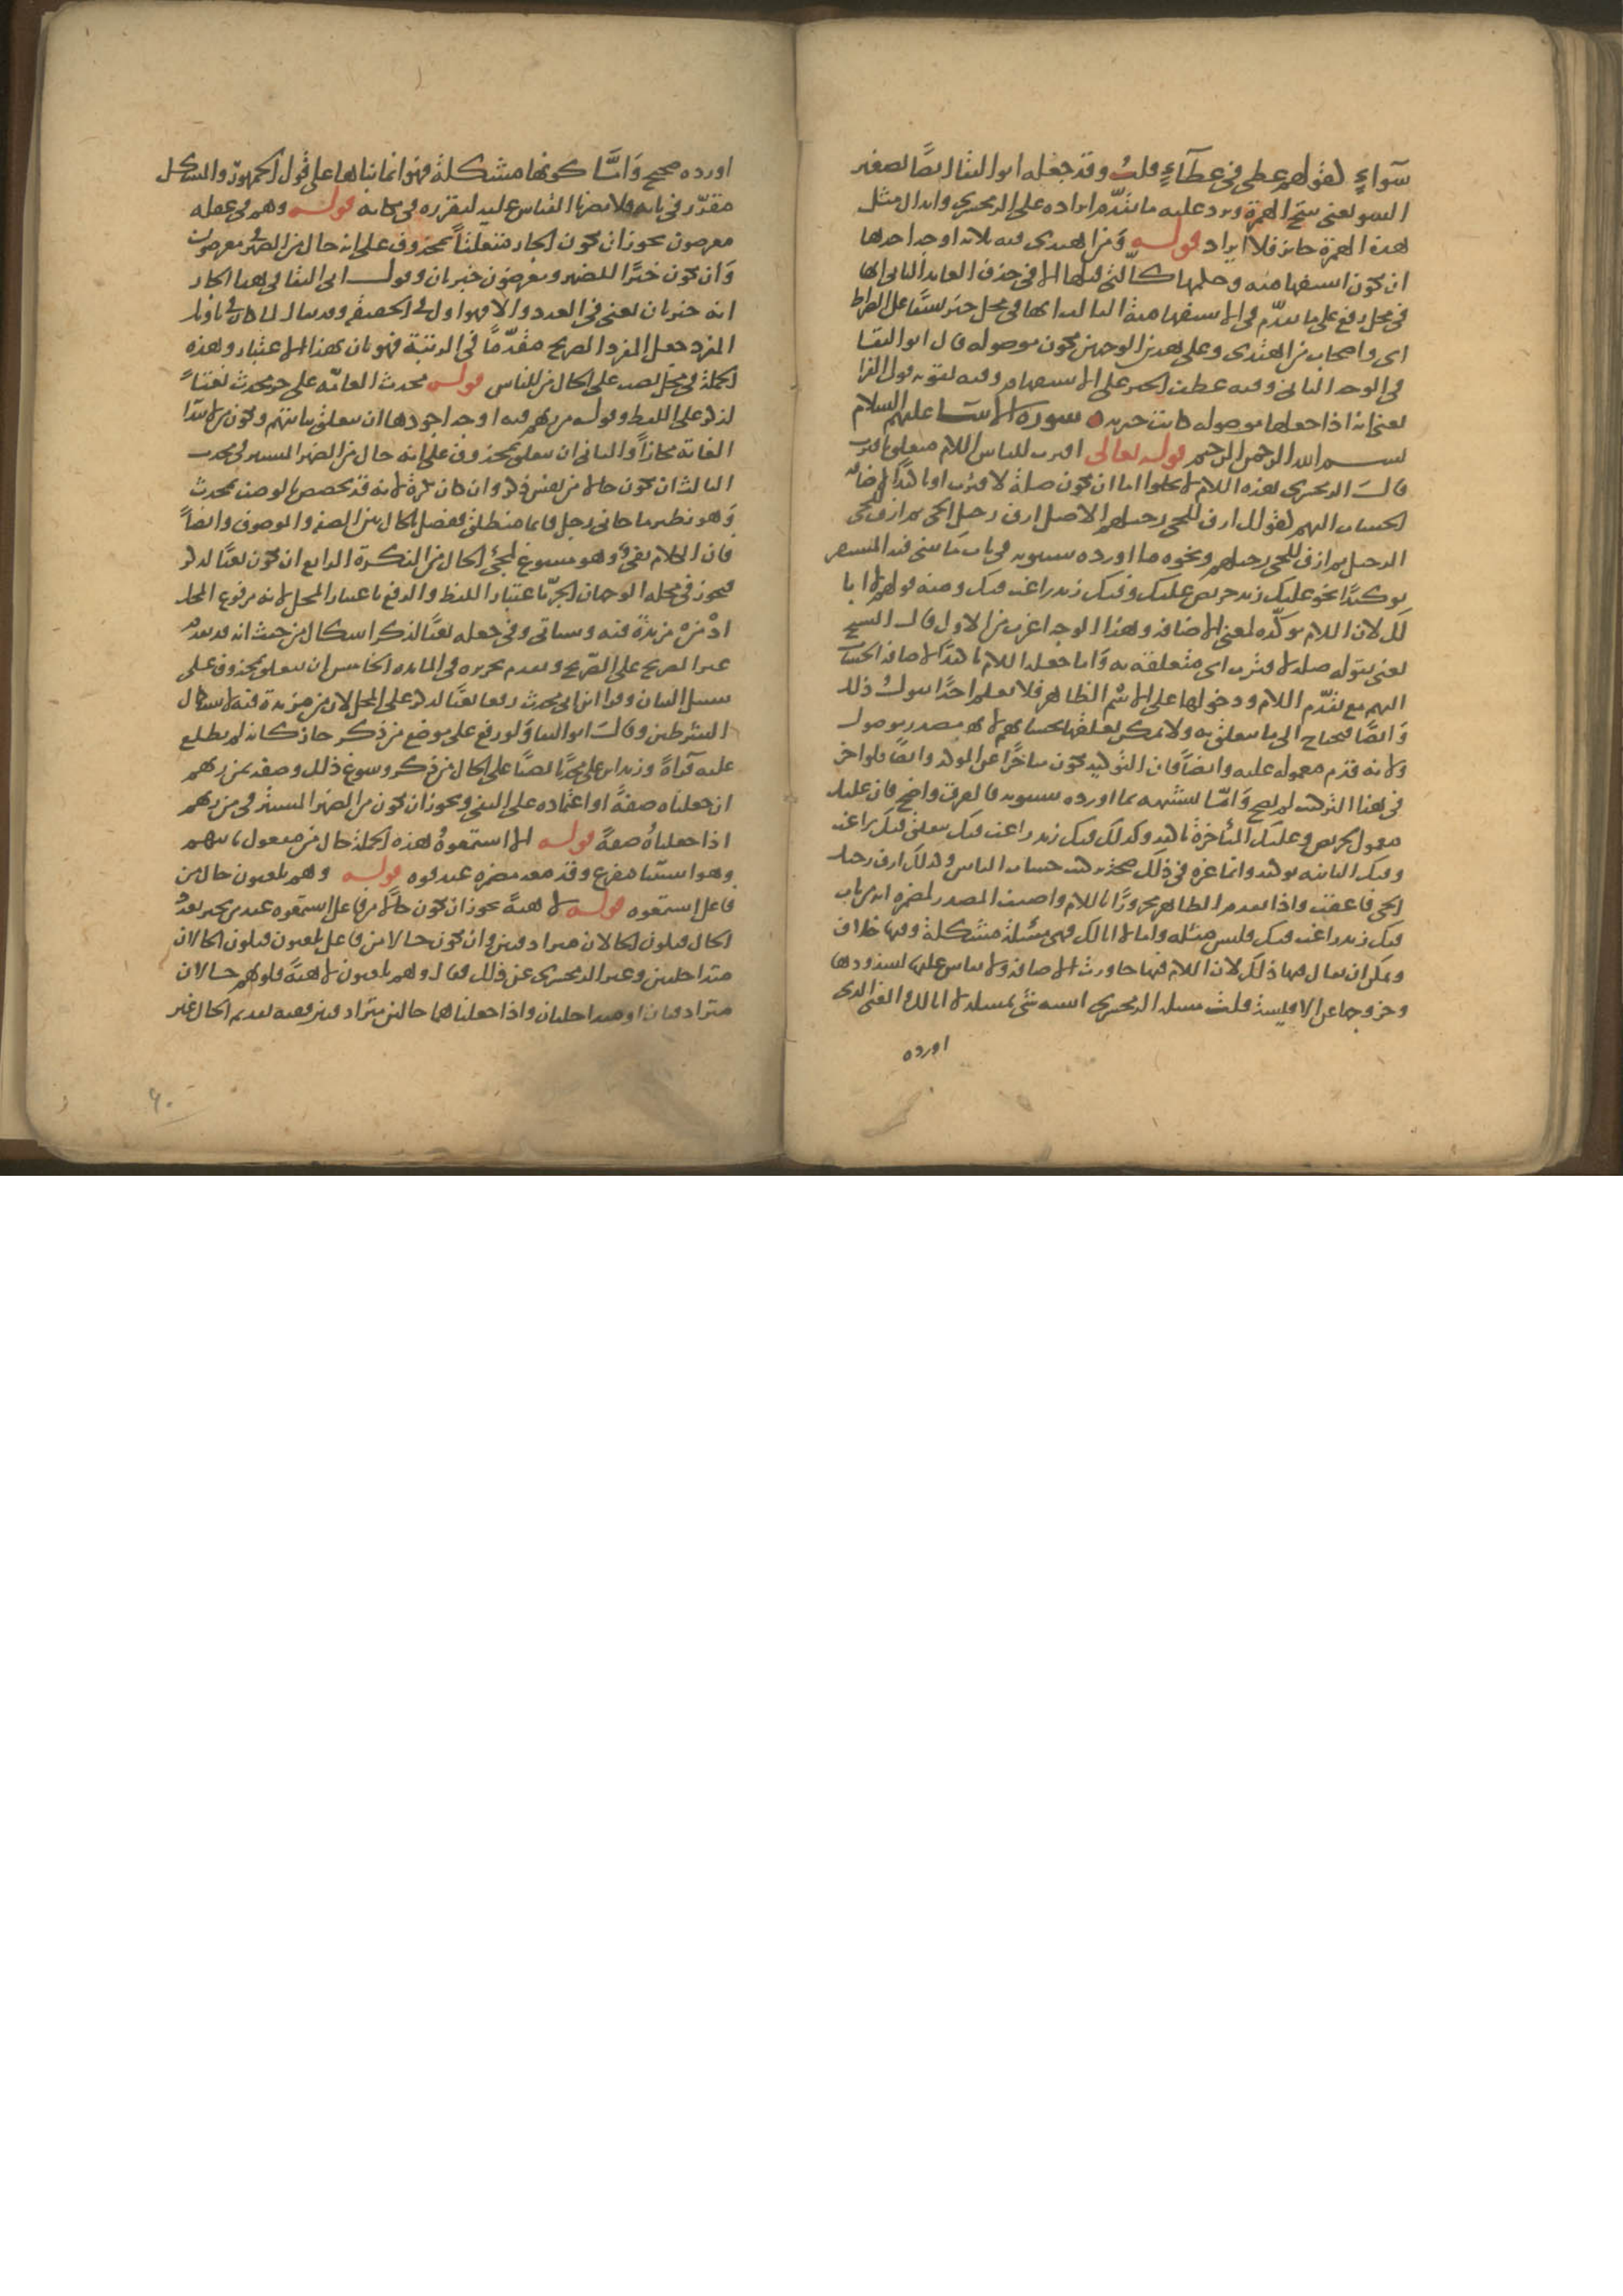 سوآءٍ لقولهم عطى فى عطآءٍ قلتُ وقد جعله ابو البقا ايضًا تصغير
السو يعنى بفتح الهمزة ويرد عليه ما تقدّم ايراده على الزمخشرى وابدال مثل
هذه الهمزة جائز فلا ايراد قوله ومن اهتدى فيه ثلاثه اوجه احدها
ان تكون استفهاميه وحكمها كالّتى قبلها الا فى حذف العايد الثانى انها
فى محل رفع على ما تقدّم فى الاستفهاميه الثالث انها فى محل جر نسقًا على الصراط
اى واصحاب من اهتدى وعلى هذين الوجهين تكون موصوله قال ابو البقا
فى الوجه الثانى وفيه عطف الخبر على الاستفهام وفيه تقويه قول الفرا
يعنى انه اذا جعلها موصوله كانت خبريه سورة الانبيا عليهم السلام
بسم الله الرحمن الرحيم قوله تعالى اقترب للناس اللام متعلق باقترب
قال الزمخشرى هذه اللام لا تخلوا اما ان تكون صلةً لاقترب او تاكيدًا لاضافه
الحساب اليهم كقولك ازف للحى رحيلهم الاصل ازف رحيل الحى ثم ازف للحى
الرحيل ثم ازف للحى رحيلهم ونحوه ما اورده سيبويه فى باب ما يثنى فيه المستقر
توكيدًا نحو عليك زيد حريص عليك وفيك زيد راغب فيك ومنه قولهم لا ابا
لك لان اللام موكّده لمعنى الاضافه وهذا الوجه اغرب من الاول قال الشيخ
يعنى بقوله صلة لاقترب اى متعلقه به وَاما جعله اللام تاكيدًا لاضافه الحساب
اليهم مع تقدّم اللام ودخولها على الاسم الظاهر فلا نعلم احدًا يقول ذلك
وَايضًا فيحتاج الى ما يتعلق به ولا يمكن تعلقها بحسابهم لانه مصدر موصول
ولانه قدّم معموله عليه وايضاً فان التوكيد يكون متاخرًا عن الموكد وايضاً فلو اخر
فى هذا التركيب لم يصح وَامّا تشبيهه بما اورده سيبويه فالفرق واضح فان عليك
معمول لحريص وعليك المتأخرة تاكيد وكذلك فيك زيد راغب فيك يتعلق فيك براغب
وفيك الثانيه توكيد وانما غره فى ذلك صحه تركيب حساب الناس وكذلك ازف رحيل
الحى فاعتقد واذا تقدم الظاهر مجرورًا باللام واضيف المصدر لضميره انه من باب
فيك زيد راغب فيك وليس مثله واما لا ابا لك فهى مسئلة مشكلة وفيها خلاف
ويمكن ان يقال فيها ذلك لان اللام فيها جاورت الاضافه ولا يقاس عليها لشذوذها
وخروجها عن الاقيسة قلت مسئلة الزمخشرى اشبه شئ بمسئلة لا ابا لك والمعنى الذى
اورده
اورده صحيح وَامّا كونها مشكلة فهو انما بناها على قول الجمهور والمشكل
مقرّر فى بابه فلا يضرنا القياس عليه لتقرره فى مكانه قوله وهم فى غفله
معرضون يجوز ان يكون الجار متعلقاً بمحذوف على انه حال من الضمير فى معرضون
وَان يكون خبرًا للضمير ومعرضون خبر ثان وقول ابى البقا فى هذا الجار
انه خبر ثان يعنى فى العدد والا فهو اول فى الحقيقه وقد يقال لما كان فى تاويل
المفرد جعل المفرد الصريح مقدّمًا فى الرتبة فهو ثان بهذا الاعتبار وهذه
الجملة فى محل نصب على الحال من للناس قوله محدث العامّه على جر محدث نعتاً
لذكر على اللفظ وقوله من ربهم فيه اوجه اجودها ان يتعلق بياتيهم وتكون من لابتدا
الغايه مجازاً والثانى ان يتعلق بمحذوف على انه حال من الضمير المستتر فى محدث
الثالث ان يكون حالا من نفس ذكر وان كان نكرة لانه قد تخصص بالوصف بمحدث
وَهو نظير ما جانى رجل قائما منطلق ففصل بالحال بين الصفه والموصوف وايضاً
فان الكلام نفى وهو مسوغ لمجئ الحال من النكرة الرابع ان يكون نعتًا لذكر
فيجوز فى محله الوجهان الجرّ باعتبار اللفظ والرفع باعتبار المحل لانه مرفوع المحل
اذْ منْ مزيدة فيه وسياتى وفى جعله نعتًا لذكر اشكال من حيث انه قد تقدّم
غير الصريح على الصّريح وتقدم تحريره فى المائده الخامس ان يتعلق بمحذوف على
سبيل البيان وقرا ابن ابى عبلة محدث رفعا نعتًا لذكر على المحل لان من مزيدة فيه لاستكمال
الشرطين وقال ابو البقا وَلو رفع على موضع من ذكر جاز كانه لم يطلع
عليه قرآةً وزيد ابن على محدثًا نصبًا على الحال من ذكر وسوغ ذلك وصفه بمن ربهم
ان جعلناه صفةً او اعتماده على النفى ويجوز ان يكون من الضمير المستتر فى من ربهم
اذا جعلناهُ صفةً قوله الا استمعوهُ هذه الجملة حال من مفعول ياتيهم
وهو استثنا مفرغ وقد معه مضمرة عند قوم قوله وهم يلعبون حال من
فاعل استمعوه قوله لاهيةً يجوز ان تكون حالًا من فاعل استمعوه عند من يجيز تعدّد
الحال فيكون الحالان مترادفين وان تكون حالا من فاعل يلعبون فيكون الحالان
متداخلين وعبر الزمخشرى عن ذلك فقال وهم يلعبون لاهيةً قلوبهم حالان
مترادفتان او متداخلتان واذا جعلناهما حالين مترادفين ففيه تقديم الحال غير
٦٠